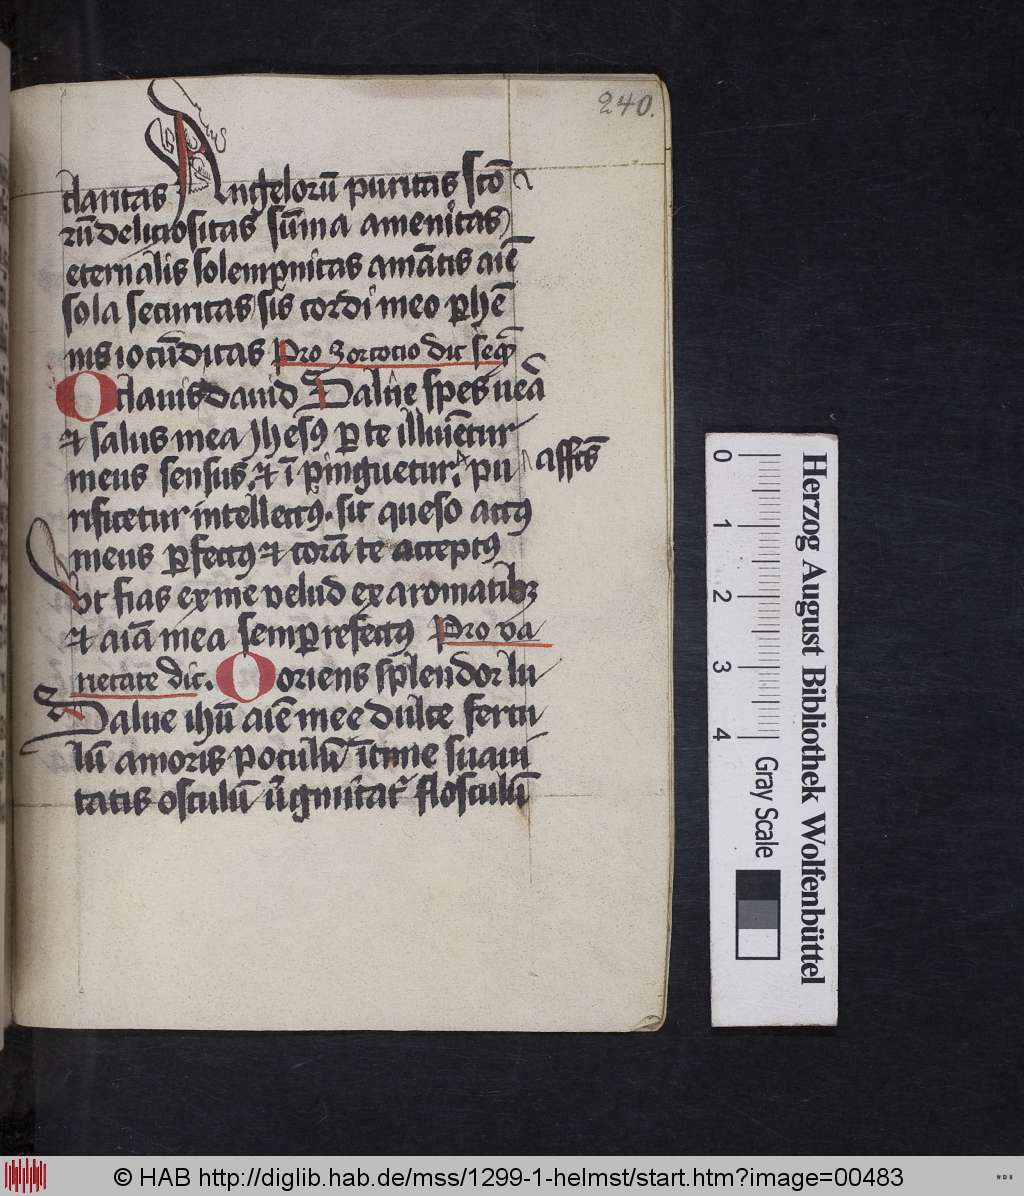 240.
claritas Angelorū puritas scō
rū deliciositas sūma amenitas
eternalis solempnitas amātis aīe
sola securitas sis cordi meo phē
nis iocūditas Pro dic seq̄
O clauis dauid Salue spes veā
et salus mea Jhesꝰ p te illuīetur
meus sensus, et ī pinguetur, pu affcs̄
rificetur intellectꝰ. sit queso actꝰ
meus pfectꝰ et corā te acceptꝰ
vt fias ex me velud ex aromatibꝫ
et aīa mea semp refectꝰ Pro va
rietate dic. O oriens splendor lu
Salue ihū aīe mee dulce fercu
lū amoris poculū ītime suaui
tatis osculū flosculū
Herzog August Bibliothek Wolfenbüttel
0 1 2 3 4
Gray Scale
© HAB http://diglib.hab.de/mss/1299-1-helmst/start.htm?image=00483